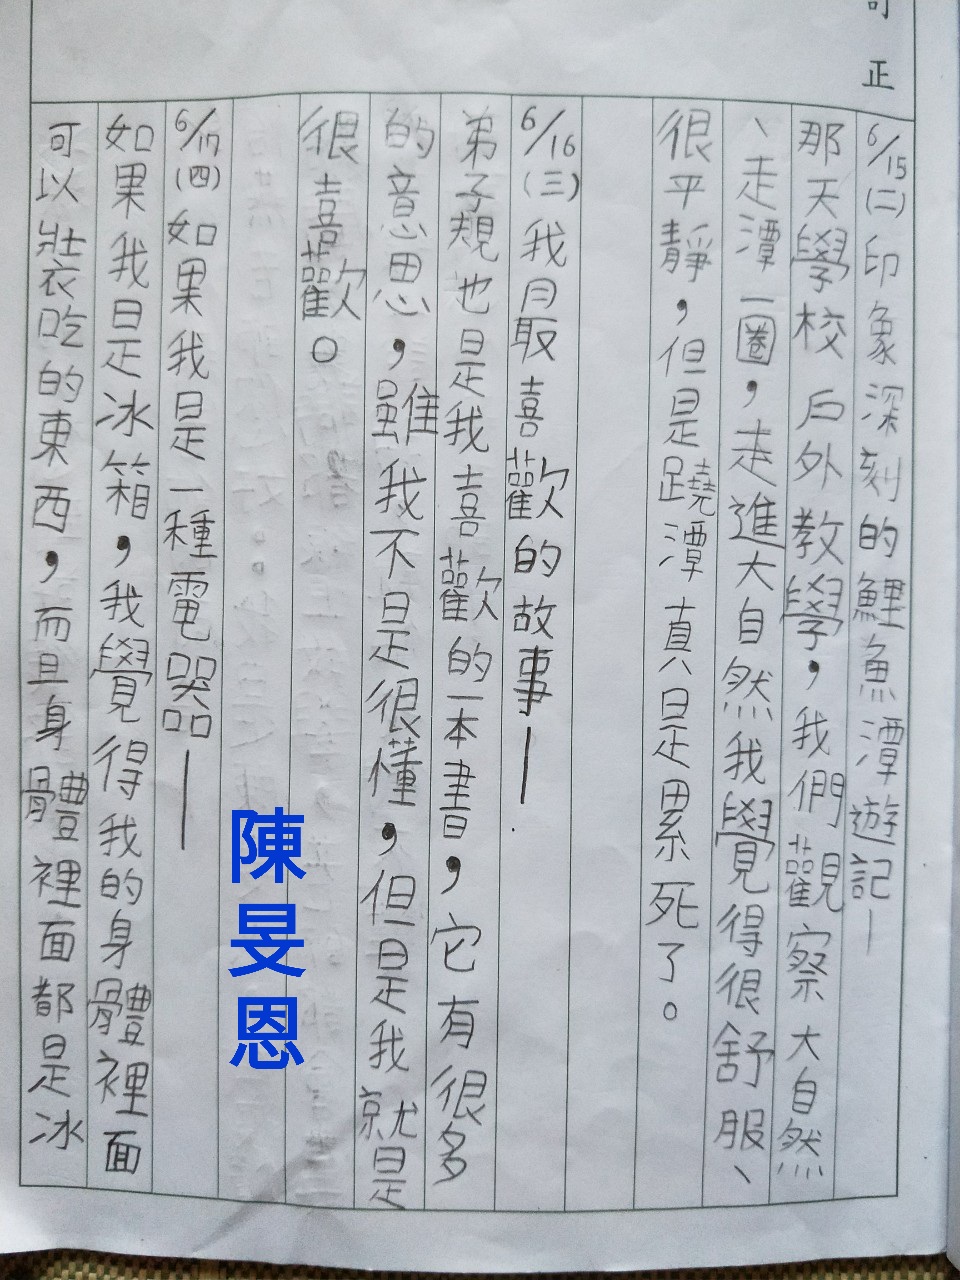 正
6/15(二)印象深刻的鯉魚潭遊記—
那天學校戶外教學，我們觀察大自然
、走潭一圈，走進大自然我覺得很舒服、
很平靜，但是蹺潭真是累死了。
6/16(三)我最喜歡的故事—
弟子規也是我喜歡的一本書，它有很多
的意思，雖我不是很懂，但是我就是
很喜歡。
6/17(四)如果我是一種電器—
如果我是冰箱，我覺得我的身體裡面
可以裝吃的東西，而且身體裡面都是冰
陳旻恩